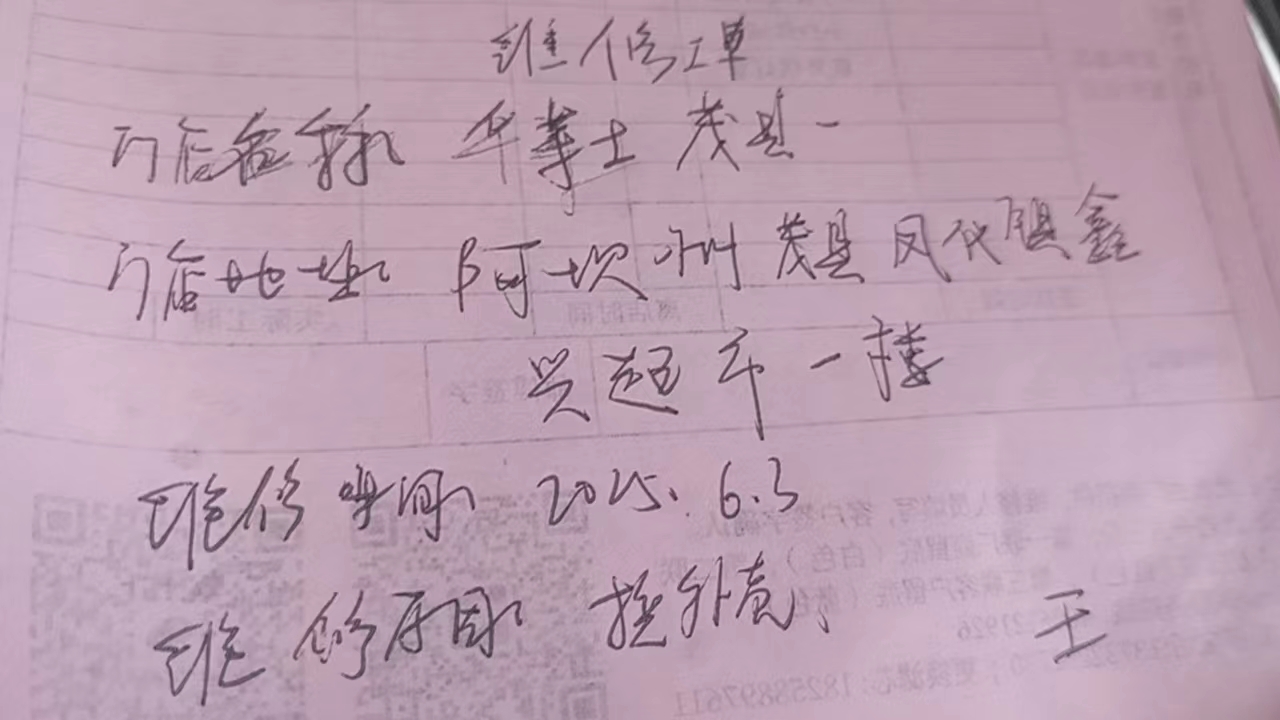 维修工单
门店名称 华莱士 茂县一
门店地址 阿坝州 茂县凤仪镇鑫
兴超市一楼
维修时间 2025.6.3
维修原因 换外壳
王